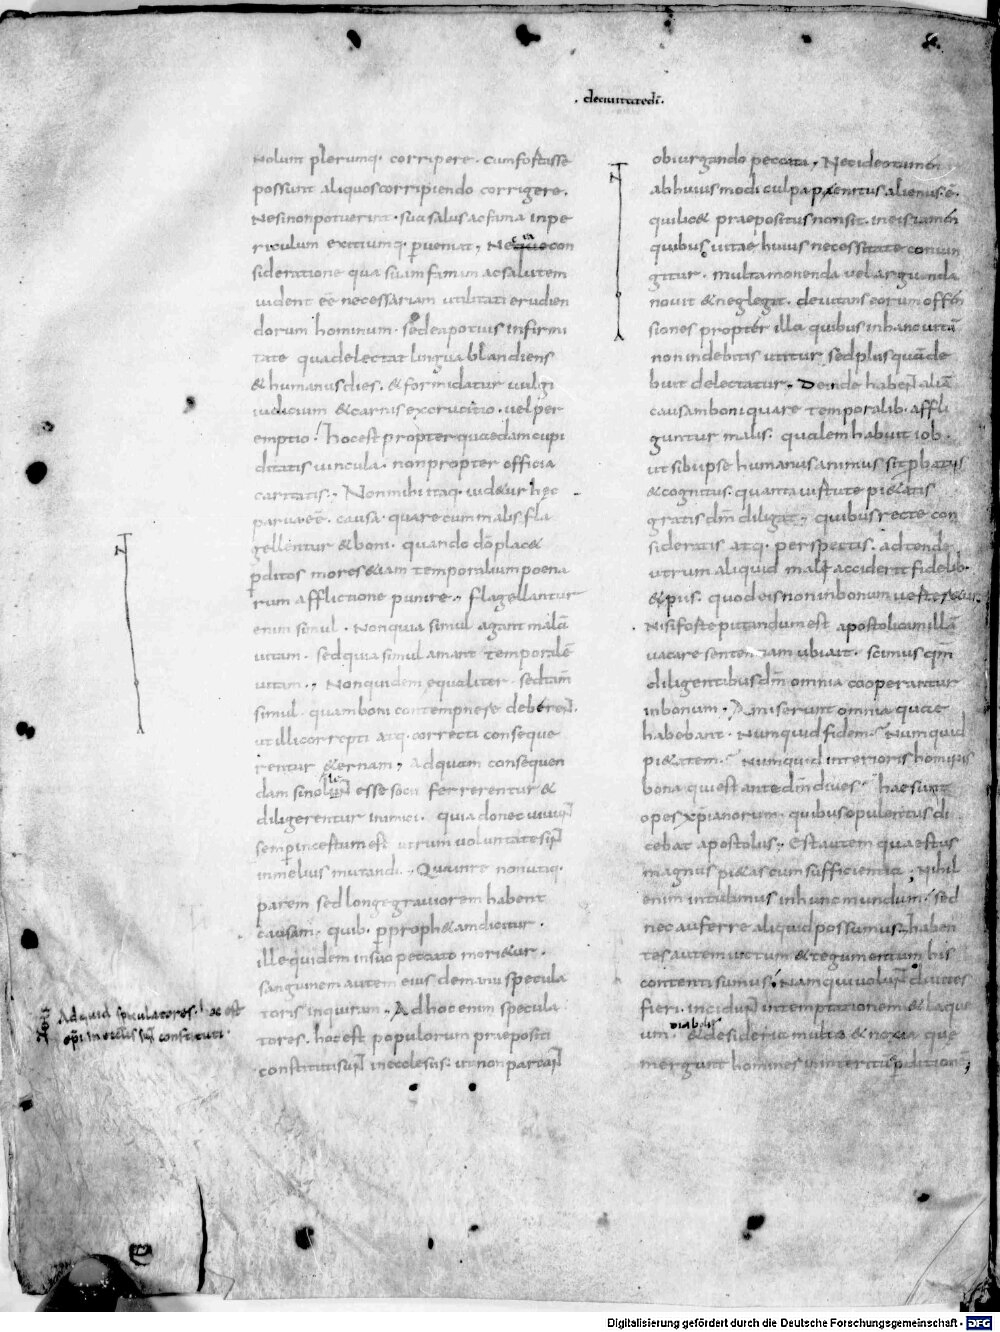 . deciuitatedi .
nolunt plerumq. corripere . cum fortasse
possunt aliquos corripiendo corrigere .
Ne si non potuerint . sua salus ac fama in pe
riculum exitiumq. perueniat , Ne con
sideratione qua suam famam ac salutem
uident eē necessariam utilitati erudien
dorum hominum . sed ea potius infirmi
tate qua delectat lingua blandiens
& humanus dies . & formidatur uulgi
iudicium & carnis excruciatio . uel per
emptio . hoc est propter quaedam cupi
ditatis uincula . non propter officia
caritatis . Non mihi itaq. uid&ur hęc
parua eē . causa . quare cum malis fla
gellentur & boni . quando dō plac&
pditos mores &iam temporalium poena
rum afflictione punire . flagellantur
enim simul . Non quia simul agant malā
uitam . sed quia simul amant temporalē
uitam . Non quidem equaliter . sed tam̄
simul . quam boni contempnere deberent .
ut illi correpti atq. correcti conseque
rentur &ernam , Ad quam consequen
dam si nollent esse socii ferrerentur &
diligerentur inimici . quia donec uiuunt
semp incertum est utrum uoluntatem sint
in melius mutandi . Qua in re non utiq.
parem sed longe grauiorem habent
causam . quib. p proph&am dicitur .
ille quidem in suo peccato mori&ur .
sanguinem autem eius de manu specula
toris inquiram . Ad hoc enim specula
tores . hoc est populorum praepositi
constituti sunt in ecclesiis . ut non parcant
Ad quid speculatores . hoc est
epi in ecclesiis sint constituti .
obiurgando peccata , Nec ideo tamen
ab huius modi culpa penitus alienus . ē .
qui lic& praepositus non sit . in eis tamen
quibus uitae huius necessitate coniun
gitur . multa monenda uel arguenda
nouit & neglegit . deuitans eorum offen
siones propter illa quibus in hac uitā
non indebitis utitur sed plus quā de
buit delectatur . Deinde habent aliā
causam boni quare temporalib. affli
guntur malis . qualem habuit iob .
ut sibi ipse humanus animus sit pbatus
& cognitus . quanta uirtute pi&atis
gratis dm̄ diligat . quibus recte con
sideratis atq. perspectis . adtende
utrum aliquid mali acciderit fidelib.
& piis . quod eis non in bonum uerter&ur .
Nisi forte putandum est apostolicam illā
uacare sententiam ubi ait . Scimus qm̄
diligentibus dm̄ omnia cooperantur
in bonum . Amiserunt omnia quae
habebant . Numquid fidem . Numquid
pi&atem . Numquid interioris hominis
bona qui est ante dm̄ diues . hae sunt
opes xpianorum . quibus opulentus di
cebat apostolus . Est autem quaestus
magnus pi&as cum sufficientia , Nihil
enim intulimus in hunc mundum . sed
nec auferre aliquid possumus . haben
tes autem uictum & tegumentum his
contenti sumus . Nam qui uolunt diuites
fieri . incidunt in temptationem & laque
um diaboli . & desideria multa & noxia que
mergunt homines in interitū pditionē ,
Digitalisierung gefördert durch die Deutsche Forschungsgemeinschaft - DFG